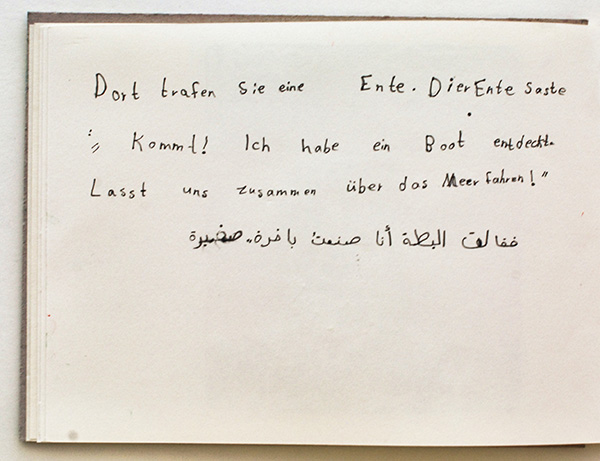 Dort trafen Sie eine Ente. Dier Ente saste :
"Kommt! Ich habe ein Boot entdeckt.
Lasst uns zusammen über das Meer fahren!"
فقالت البطة أنا صنعت باخرة صغيرة